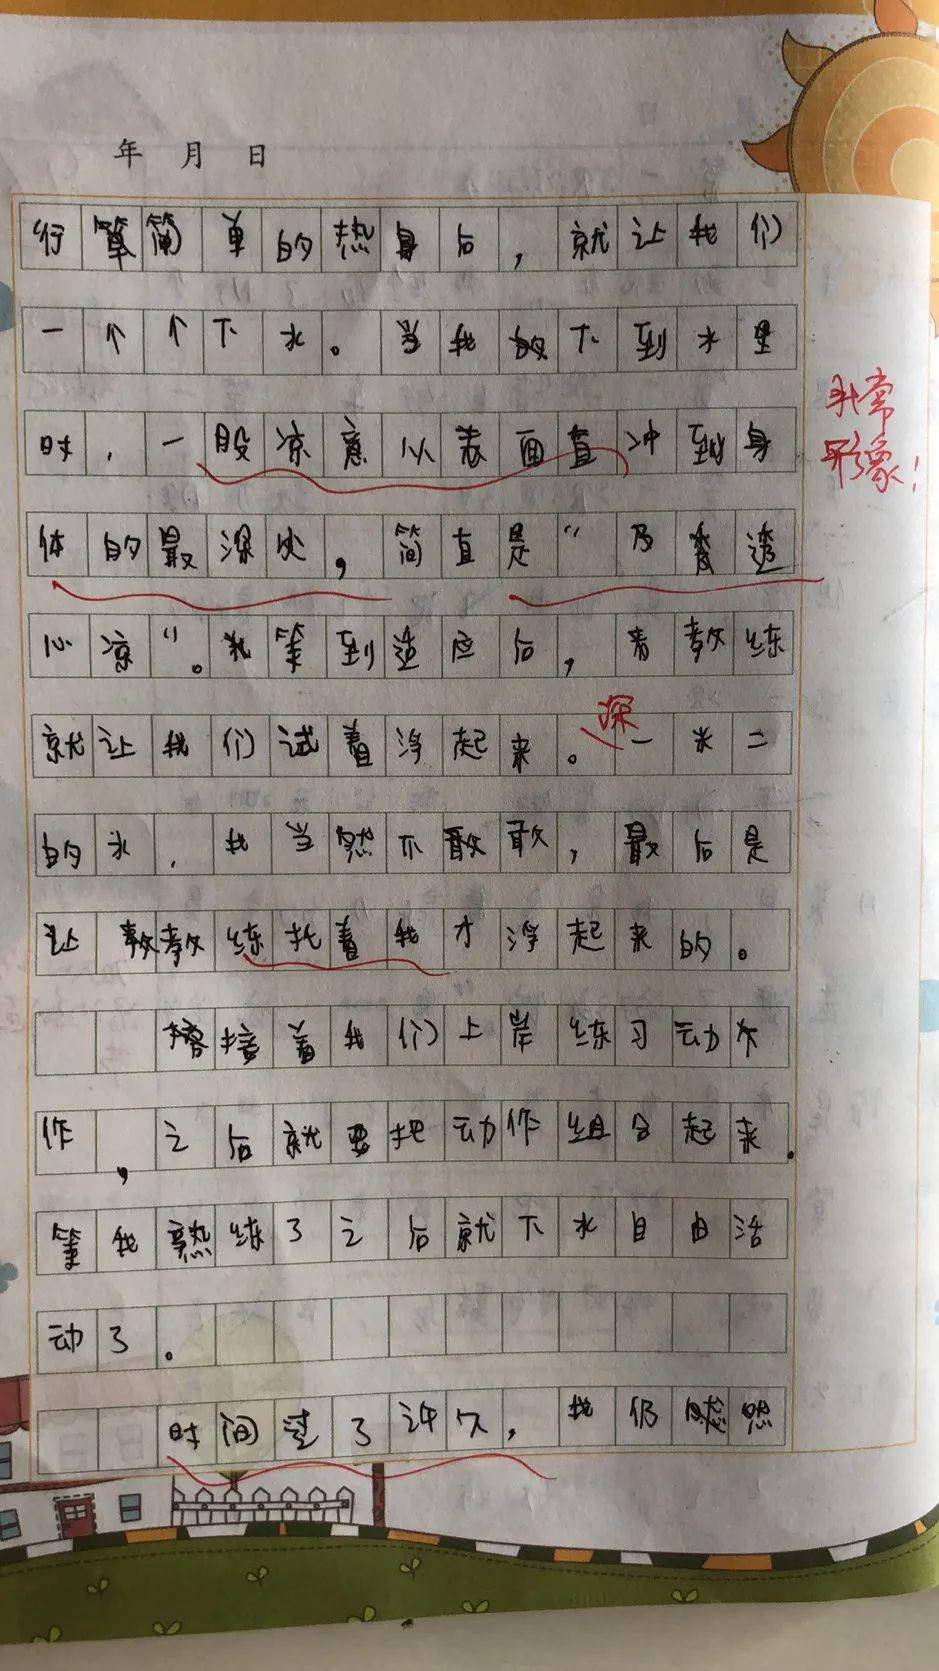 年 月 日
行简单的热身后，就让我们
一个个下水。当我下到水里
时，一股凉意从表面直冲到身
非常
形象！
体的最深处，简直是“乃透
心凉”。我等到适应后，教练
就让我们试着浮起来。深一米二
的水，我当然不敢，最后是
让教练托着我才浮起来的。
接着我们上岸练习动
作，之后就要把动作组合起来.
等我熟练了之后就下水自由活
动了。
时间过了许久，我仍